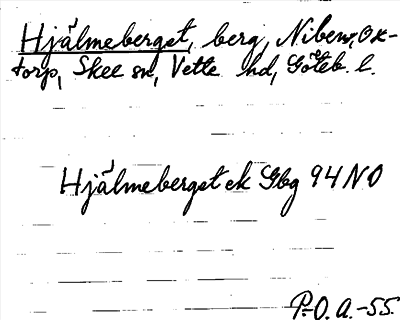 Hjälmeberget, berg, Niben, Ok-
torp, Skee sn, Vette hd, Göteb. l.
Hjälmeberget ek Gbg 94 NO
P-O. A.-55.